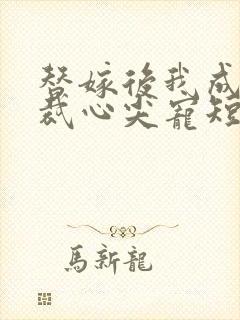 替嫁後我成
裁心尖寵短
馬新龍